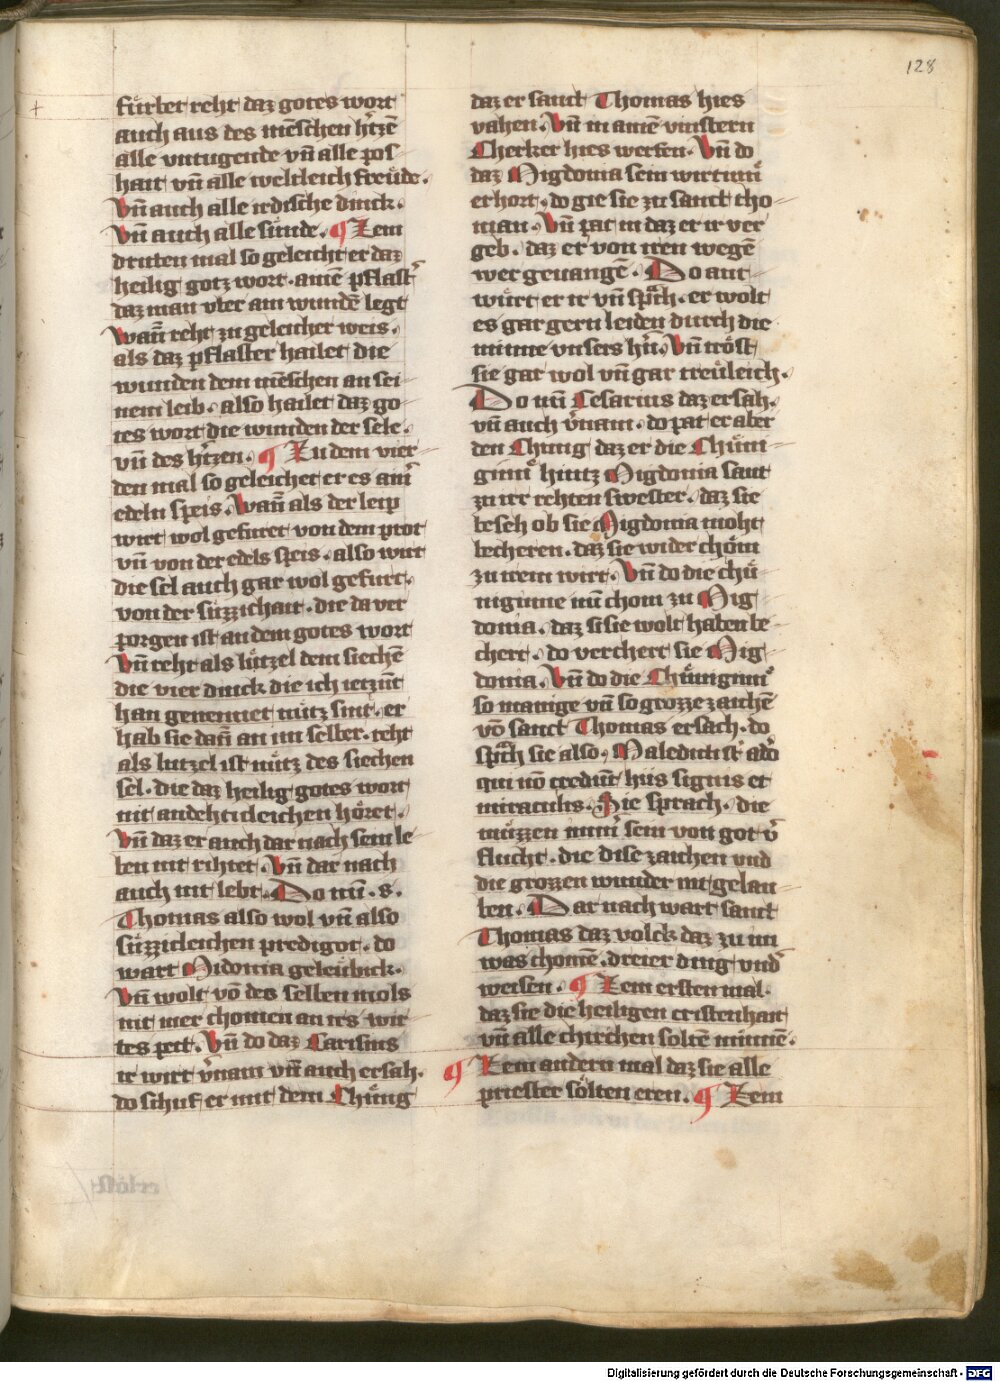 128
fürbet reht daz gotes wort
auch aus des mēschen h̓tzē
alle vntugende vn̄ alle pos
hait vn̄ alle weltleich freude.
Vn̄ auch alle irdische dinck.
Vn̄ auch alle sünde. ¶ Zem
dritten mal so geleicht er daz
heilig gotz wort. ainē pflast̓
daz man vber ain wundē legt
wan̄ reht zu geleicher weis.
als daz pflaster hailet die
wunden dem mēschen an sei
nem leib. also hailet daz go
tes wort die wunden der sele.
vn̄ des h̓tzen. ¶ Zu dem vier
den mal so geleichet er es ain̓
edeln speis. Wan̄ als der leip
wirt wol gefuret von dem prot
vn̄ von der edels speis. also wirt
die sel auch gar wol gefurt.
von der süzzichait. die da ver
porgen ist an dem gotes wort
Vn̄ reht als lützel dem siechē
die vier dinck die ich ietzūt
han genennet nütz sint. er
hab sie dan̄ an im selber. reht
als lutzel ist nütz des siechen
sel. die daz heilig gotes wort
nit andehticleichen höret.
Vn̄ daz er auch dar nach sein le
ben nit rihtet. Vn̄ dar nach
auch nit lebt. Do nū. s.
Thomas also wol vn̄ also
süzzicleichen predigot. do
wart Midonia geleubick.
Vn̄ wolt vō des selben mols
nit mer chomen an irs wir
tes pett. Vn̄ do daz Carisius
ir wirt v̓nam vn̄ auch ersah.
do schuf er mit dem Chüng
daz er sanct Thomas hies
vahen. Vn̄ in ainē vinstern
Cherker hies werfen. Vn̄ do
daz Migdonia sein wirtinn̄
erhort. do gie sie zu sanct tho
man. Vn̄ pat in daz er ir ver
geb. daz er von iren wegē
wer geuangē. Do ant
würt er ir vn̄ sprach. er wolt
es gar gern leiden durch die
minne vnsers h̓n. Vn̄ tröst
sie gar wol vn̄ gar treuleich.
Do nū Cesarius daz ersah.
vn̄ auch v̓nam. do pat er aber
den Chung daz er die Chün
ginn̄ hintz Migdonia sant
zu irr rehten swester. daz sie
beseh ob sie Migdonia moht
becheren. daz sie wider chöm
zu irem wirt. Vn̄ do die chü
niginne nū chom zu Mig
donia. daz si sie wolt haben be
chert. do verchert sie Mig
donia. Vn̄ do die Chünginn̄
so manige vn̄ so grozze zaichē
vō sanct Thomas ersach. do
sprach sie also. Maledicti sūt a deo
qui nō credūt hiis signis et
miraculis. Sie sprach. die
müzzen im̄ sein von got v̓
flucht. die dise zaichen vnd
die grozzen wunder nit gelau
ben. Dar nach wart sanct
Thomas daz volck daz zu im
was chomē. dreier ding vnd̓
weisen. ¶ Zem ersten mal.
daz sie die heiligen cristenhait
vn̄ alle chirchen soltē minnē.
¶ Zem andern mal daz sie alle
priester sölten eren. ¶ Zem
Digitalisierung gefördert durch die Deutsche Forschungsgemeinschaft - DFG